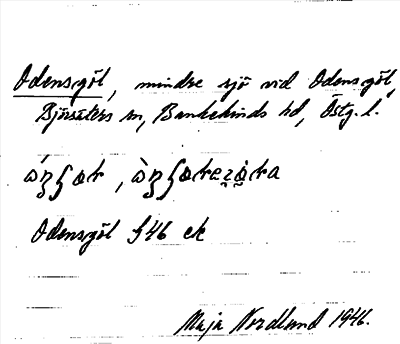 Odensgöl, mindre sjö vid Odensgöl,
Björsäters sn, Bankekinds hd, Östg. l.
Odensgöl S46 ek
Maja Nordlund 1946.